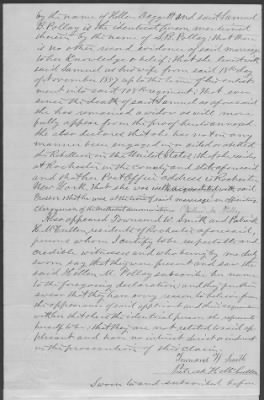 by the name of Hellen Daggett and said Samuel
B. Polley is the identical person mentioned
therein by the name of S. B. Polley, that there
is no other record evidence of said marriage
to her knowledge or belief; that she lived with
said Samuel as his wife from said 18th day
of November 1857 up to the time of his enlist-
ment into said 108th regiment. That ever
since the death of said Samuel as aforesaid
she has remained a widow as will more
fully appear from the proof hereto annexed.
She also declares that she has not in any
manner been engaged in or aided or abetted
the Rebellion in the United States; that she resides
at Rochester in the County and State aforesaid
and that her Post Office address is Rochester
New York, That she was well acquainted with said
Person who was at the time of said marriage an
Clergyman of the
Also appeared Townsend W. Smith and Patrick
H. McCullen, residents of Rochester aforesaid,
persons whom I certify to be respectable and
credible witnesses and who being by me duly
sworn say that they were present and saw the
said Hellen M. Polley subscribe her name
to the foregoing declaration; and they further
swear that they have every reason to believe from
the appearance of said applicant and their acquaint-
ance with her that she is the identical person she represents
herself to be; that they are not related to said ap-
plicant and have no interest direct or indirect
in the prosecution of this claim.
Townsend W Smith
Patrick H McCullen
Sworn to and subscribed before